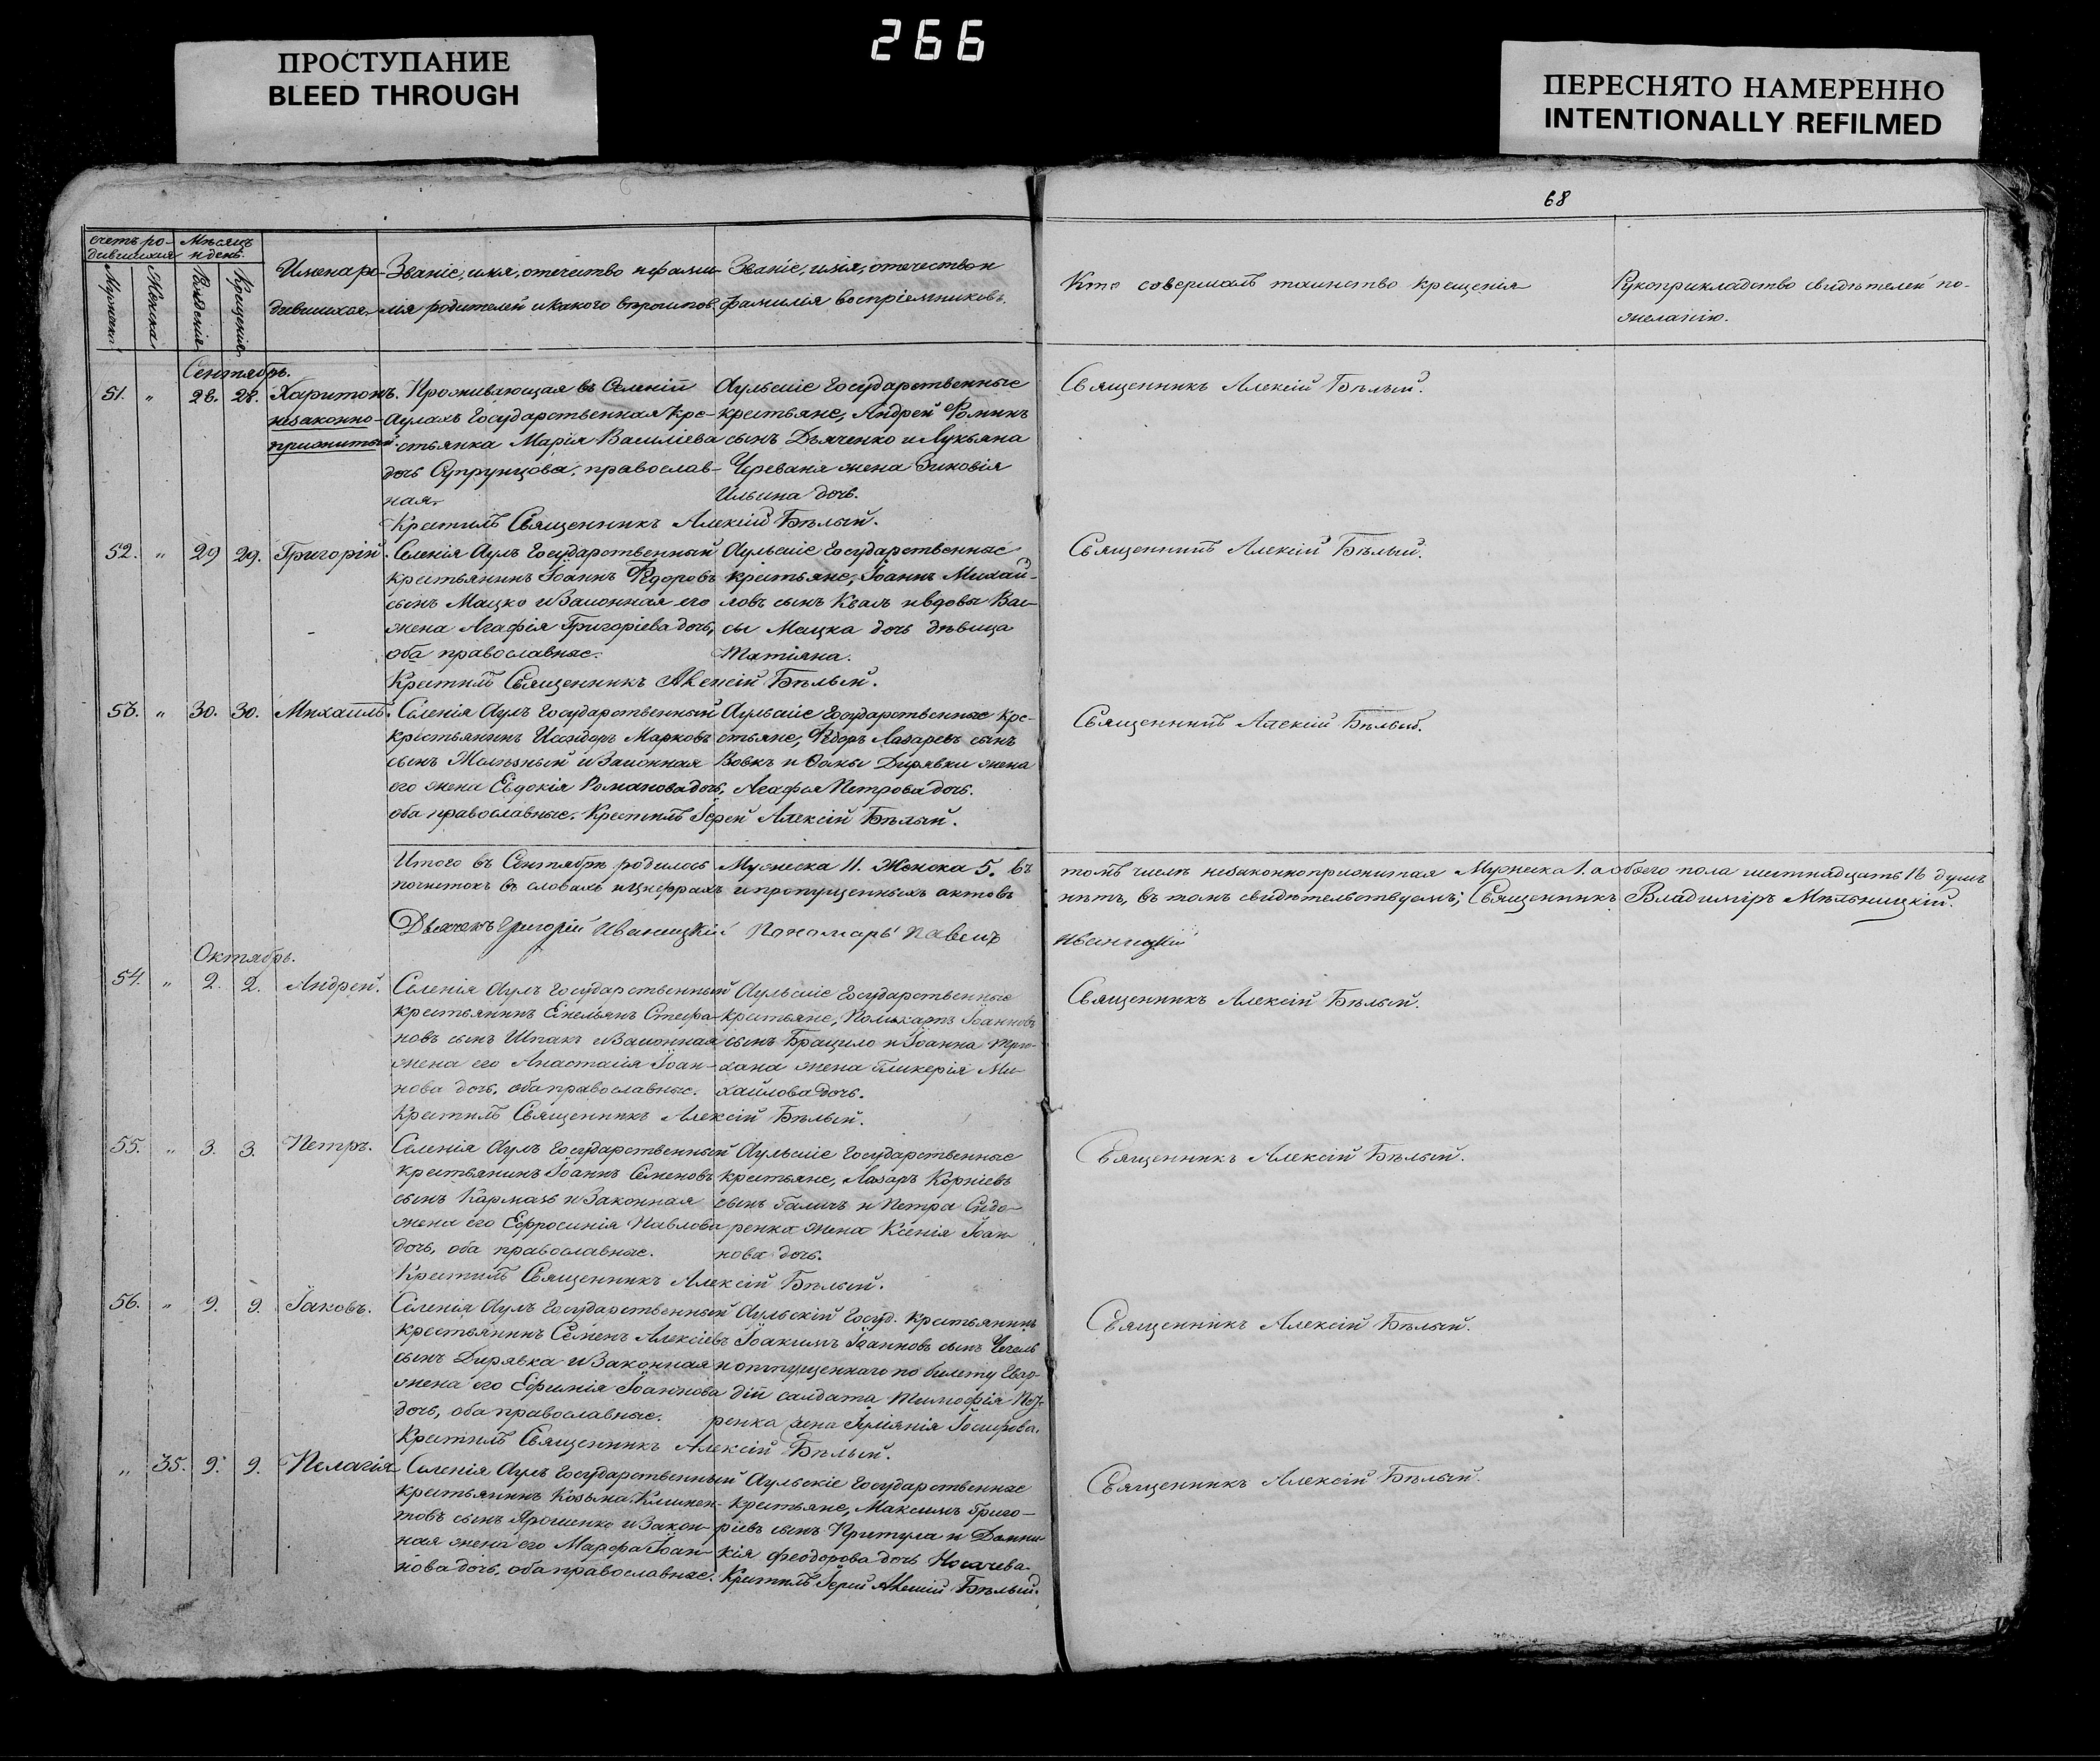 266
ПРОСТУПАНИЕ
BLEED THROUGH
ПЕРЕСНЯТО НАМЕРЕННО
INTENTIONALLY REFILMED
68
счетъ ро-
дившихся
Мѣсяцъ
и день.
Мужеска
Женска
Рожденія
Крещенія
Имена ро-
дившихся
Званіе, имя, отечество и фами-
лія родителей и какого вѣроиспов
Званіе, имя, отечество и
фамилія воспріемниковъ.
Кто совершалъ таинство крещенія
Рукоприкладство свидѣтелей по-
желанію.
Сентябрь.
51. „ 26. 28. Харитонъ.
незаконно-
прижитый.
Проживающая въ Селеніи
Аулахъ Государственная кре-
стьянка Марія Василіева
дочь православ-
ная.
Аульскіе Государственные
крестьяне, Андрей Фоминъ
сынъ Дьяченко и Лукьяна
Череваня жена Зиновія
Ильина дочь.
Крестилъ Священникъ Алексій Бѣлый.
Священникъ Алексій Бѣлый.
52. „ 29 29. Григорій.
Селенія Аулъ Государственный
крестьянинъ Іоаннъ Федоровъ
сынъ Мацко и Законная его
жена Агафія Григоріева дочь,
оба православные.
Аульскіе Государственные
крестьяне, Іоаннъ Михай-
ловъ сынъ Коваль и вдовы Вас-
сы Мацка дочь дѣвица
Татіяна.
Крестилъ Священникъ Алексій Бѣлый.
Священникъ Алексій Бѣлый.
53. „ 30. 30. Михаилъ.
Селенія Аулъ Государственный
крестьянинъ Исидоръ Марковъ
сынъ и Законная
его жена Евдокія Романова дочь,
оба православные. Крестилъ Іерей Алексій Бѣлый.
Аульскіе Государственные кре-
стьяне, Федоръ Лазаревъ сынъ
Вовкъ и Фомы Дирявки жена
Агафья Петрова дочь.
Священникъ Алексій Бѣлый.
Итого въ Сентябрѣ родилось Мужеска 11. Женска 5. въ томъ числѣ незаконноприжитая Мужеска 1. а обоего пола шестнадцать 16 душъ
почистокъ въ словахъ и цифрахъ и пропущенныхъ актовъ нѣтъ, въ томъ свидѣтельствуемъ; Священникъ Владиміръ Мѣльницкій.
Дьячокъ Григорій Иваницкій Пономарь Павелъ Иваницкій
Октябрь.
54. „ 2. 2. Андрей.
Селенія Аулъ Государственный
крестьянинъ Емельянъ Стефа-
новъ сынъ Шпакъ и Законная
жена его Анастасія Іоан-
нова дочь, оба православные.
Аульскіе Государственные
крестьяне, Поликарпъ Іоанновъ
сынъ Брацило и Іоанна
жена Гликерія Ми-
хайлова дочь.
Крестилъ Священникъ Алексій Бѣлый.
Священникъ Алексій Бѣлый.
55. „ 3. 3. Петръ.
Селенія Аулъ Государственный
крестьянинъ Іоаннъ Семеновъ
сынъ Кармазь и Законная
жена его Ефросинія Павлова
дочь, оба православные.
Аульскіе Государственные
крестьяне, Лазарь Корніевъ
сынъ Галичъ и Петра Сидо-
ренка жена Ксенія Іоан-
нова дочь.
Крестилъ Священникъ Алексій Бѣлый.
Священникъ Алексій Бѣлый.
56. „ 9. 9. Іаковъ.
Селенія Аулъ Государственный
крестьянинъ Семенъ Алексіевъ
сынъ Дирявка и Законная
жена его Ефимія Іоаннова
дочь, оба православные.
Аульскій Госуд. крестьянинъ
Іоакимъ Іоанновъ сынъ Чечель
и отпущеннаго по билету Гвар-
діи солдата Тимофія
ренка жена Іосифова.
Крестилъ Священникъ Алексій Бѣлый.
Священникъ Алексій Бѣлый.
„ 35. 9. 9. Пелагія
Селенія Аулъ Государственный
крестьянинъ Козьма Климен-
товъ сынъ Ярошенко и Закон-
ная жена его Марфа Іоан-
нова дочь, оба православные.
Аульскіе Государственные
крестьяне, Максимъ Григо-
ріевъ сынъ Притула и Домни-
кія Феодорова дочь Носачева.
Крестилъ Іерей Алексій Бѣлый.
Священникъ Алексій Бѣлый.